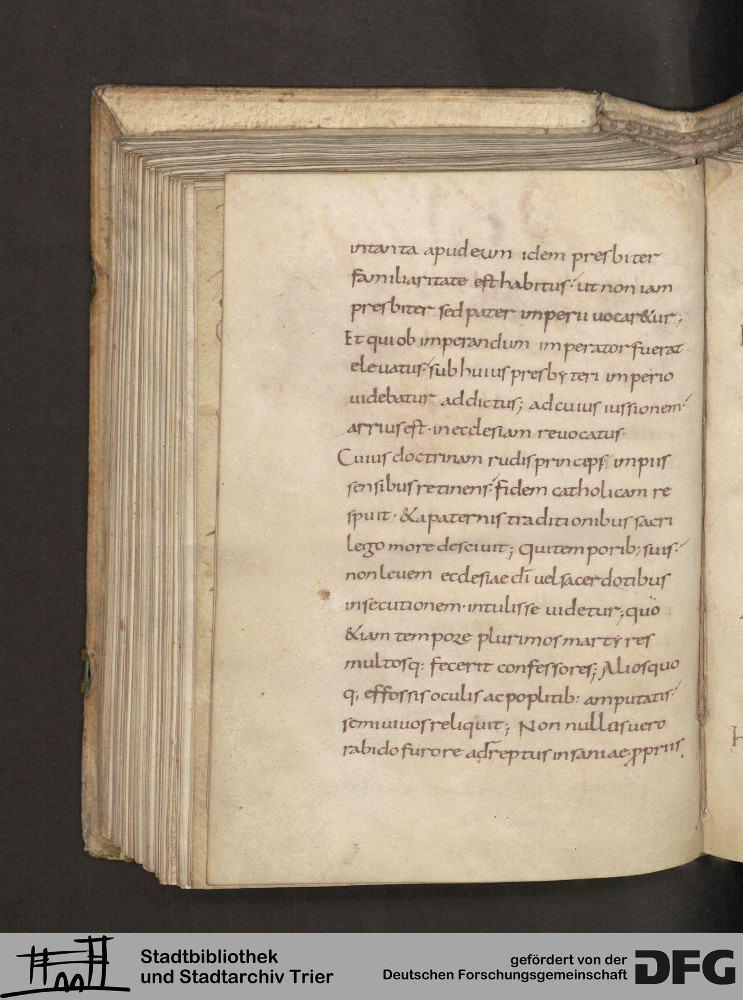 intanta apud eum idem presbiter
familiaritate est habitus· ut non iam
presbiter sed pater imperii uocar&ur;
Et qui ob imperandum imperator fuerat
eleuatus· sub huius presbyteri imperio
uidebatur addictus; ad cuius iussionem·
arrius est· in ecclesiam reuocatus·
Cuius doctrinam rudis princeps impiis
sensibus retinens· fidem catholicam re
spuit· & a paternis traditionibus sacri
lego more desciuit; qui temporib; suis·
non leuem ecclesiae dī uel sacerdotibus
insecutionem· intulisse uidetur; quo
&iam tempore plurimos martyres
multosq: fecerit confessores; Aliosquo
q; effossis oculis ac poplitib: amputatis·
semiuiuos reliquit; Non nullis uero
rabido furore adreptus insaniae propriis
Stadtbibliothek
und Stadtarchiv Trier
gefördert von der
Deutschen Forschungsgemeinschaft
DFG